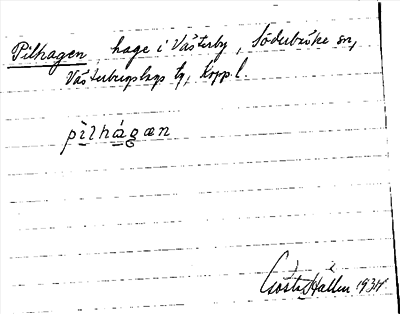 Pilhagen, hage i Västerby, Söderbärke sn,
Västerbergslags tg, Kopp. l
pìlhágæn
Gösta Hallen 1934.